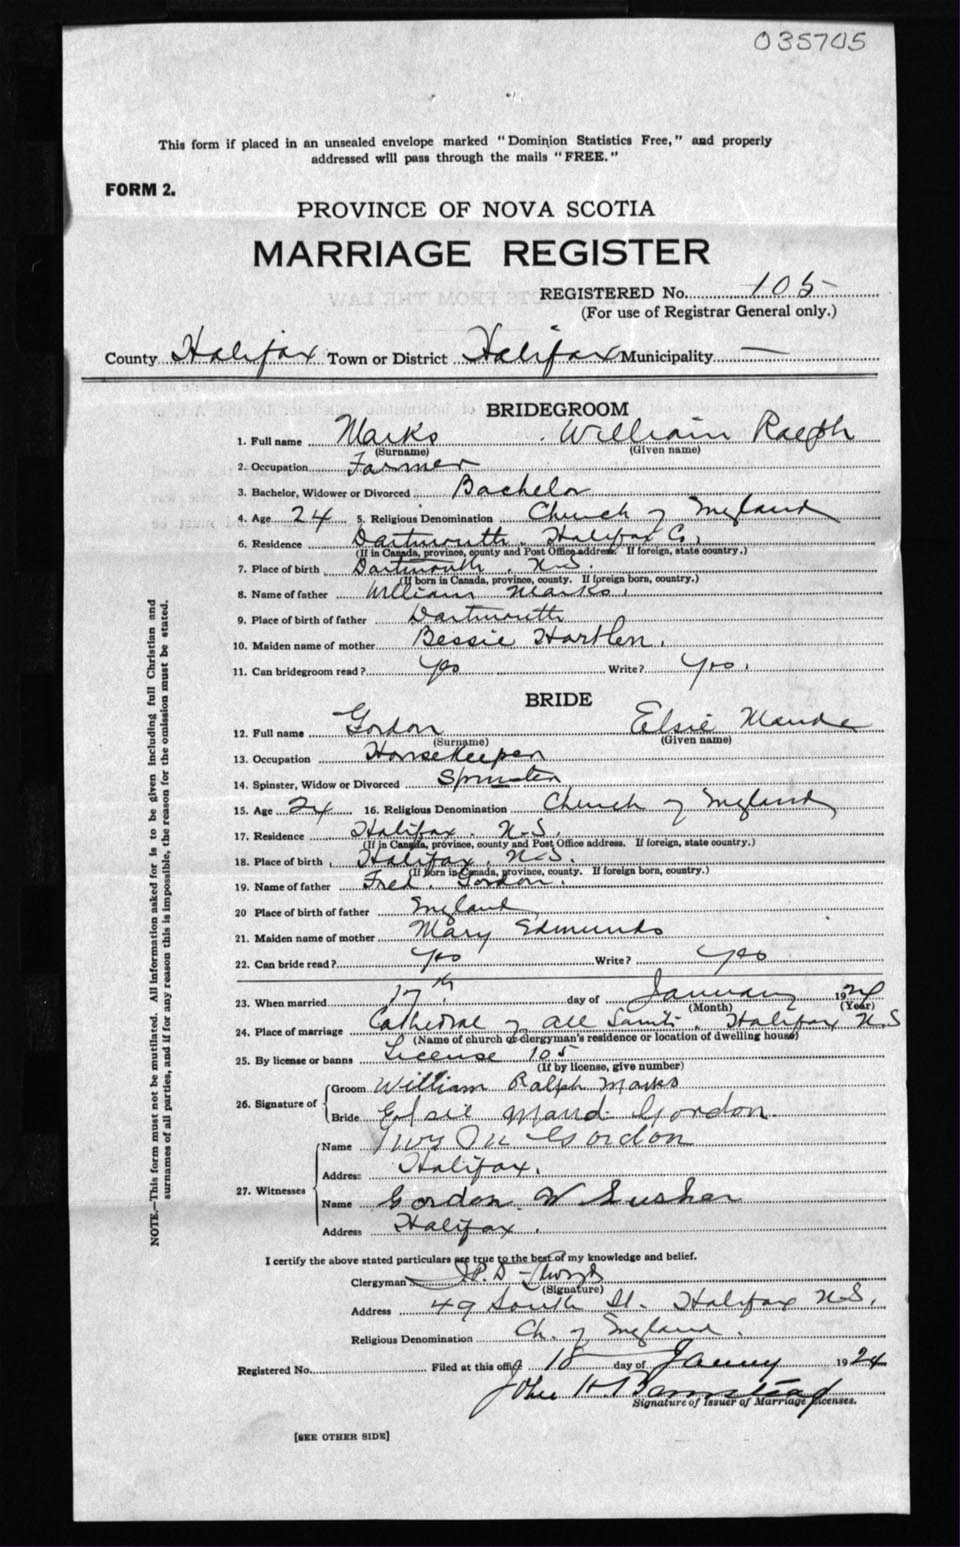 035705
This form if placed in an unsealed envelope marked "Dominion Statistics Free," and properly
addressed will pass through the mails "FREE."
FORM 2.
PROVINCE OF NOVA SCOTIA
MARRIAGE REGISTER
REGISTERED No. 105
(For use of Registrar General only.)
County Halifax Town or District Halifax Municipality —
BRIDEGROOM
1. Full name Marks William Ralph
(Surname) (Given name)
2. Occupation Farmer
3. Bachelor, Widower or Divorced Bachelor
4. Age 24 5. Religious Denomination Church of England
6. Residence Dartmouth, Halifax Co.
(If in Canada, province, county and Post Office address. If foreign, state country.)
7. Place of birth Dartmouth, N.S.
(If born in Canada, province, county. If foreign born, country.)
8. Name of father William Marks.
9. Place of birth of father Dartmouth
10. Maiden name of mother Bessie Hartlen.
11. Can bridegroom read? Yes Write? Yes.
BRIDE
12. Full name Gordon Elsie Maude
(Surname) (Given name)
13. Occupation Housekeeper
14. Spinster, Widow or Divorced Spinster
15. Age 24 16. Religious Denomination Church of England
17. Residence Halifax. N.S.
(If in Canada, province, county and Post Office address. If foreign, state country.)
18. Place of birth Halifax, N.S.
(If born in Canada, province, county. If foreign born, country.)
19. Name of father Fred. Gordon.
20 Place of birth of father England
21. Maiden name of mother Mary Edmunds
22. Can bride read? Yes Write? Yes
23. When married 17th day of January 1924
(Month) (Year)
24. Place of marriage Cathedral of All Saints, Halifax N.S
(Name of church or clergyman's residence or location of dwelling house)
25. By license or banns License 105
(If by license, give number)
26. Signature of Groom William Ralph Marks
Bride Elsie Maud Gordon.
27. Witnesses
Name Gordon
Address Halifax.
Name Gordon W
Address Halifax.
NOTE.—This form must not be mutilated. All information asked for is to be given including full Christian and
surnames of all parties, and if for any reason this is impossible, the reason for the omission must be stated.
I certify the above stated particulars are true to the best of my knowledge and belief.
Clergyman
(Signature)
Address 49 South St. Halifax N.S.
Religious Denomination Ch. of England.
Registered No. Filed at this office 18 day of Jany 1924
John H Barnstead
Signature of Issuer of Marriage Licenses.
[SEE OTHER SIDE]